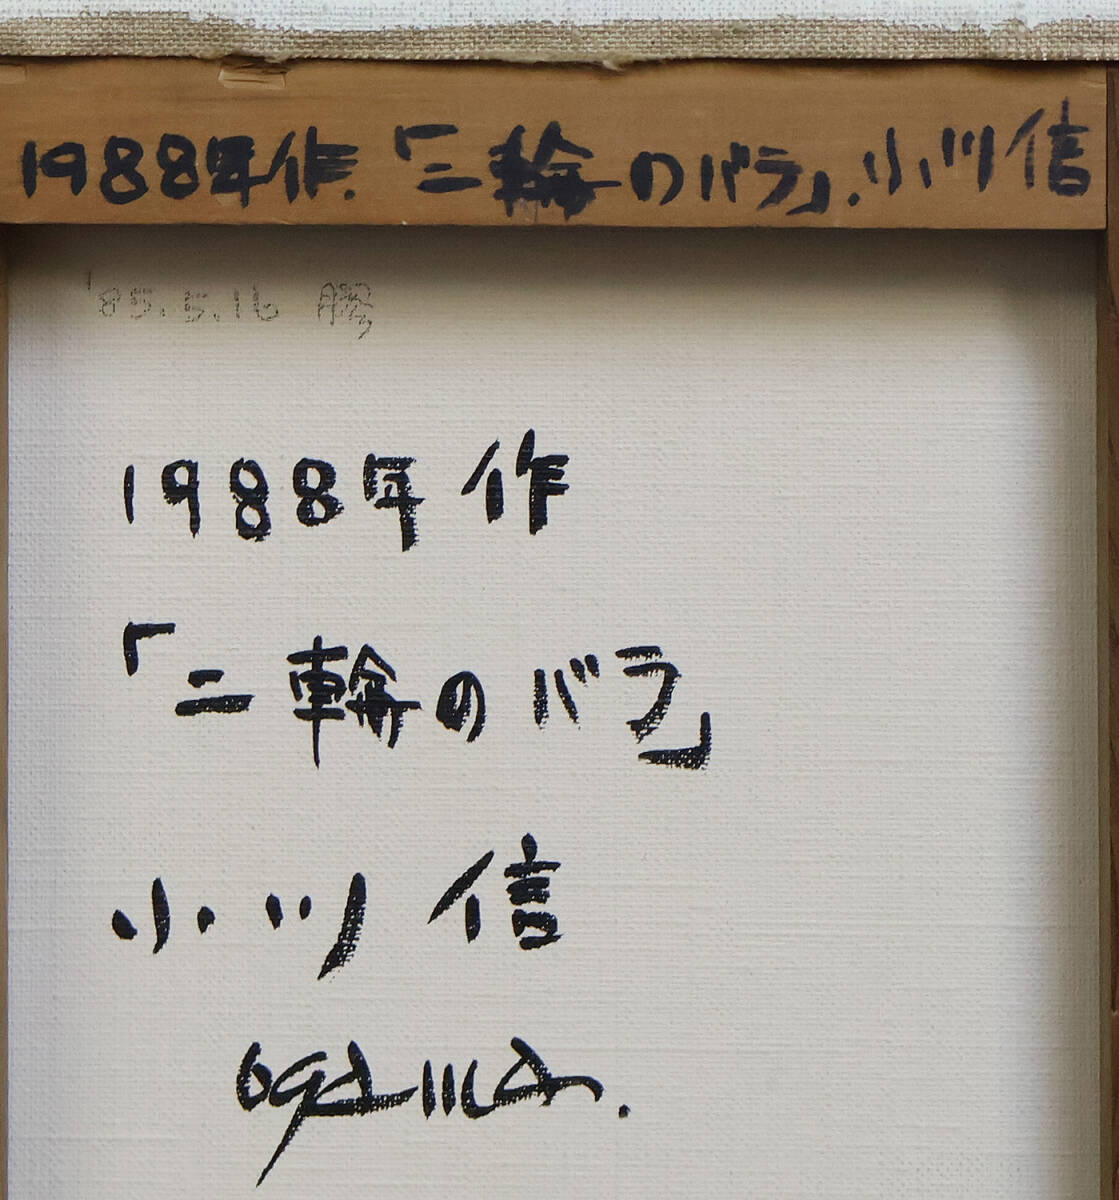 1988年作.「二輪のバラ」.小川信
'85.5.16 膠
1988年 作
「二輪のバラ」
小川 信
ogawa.